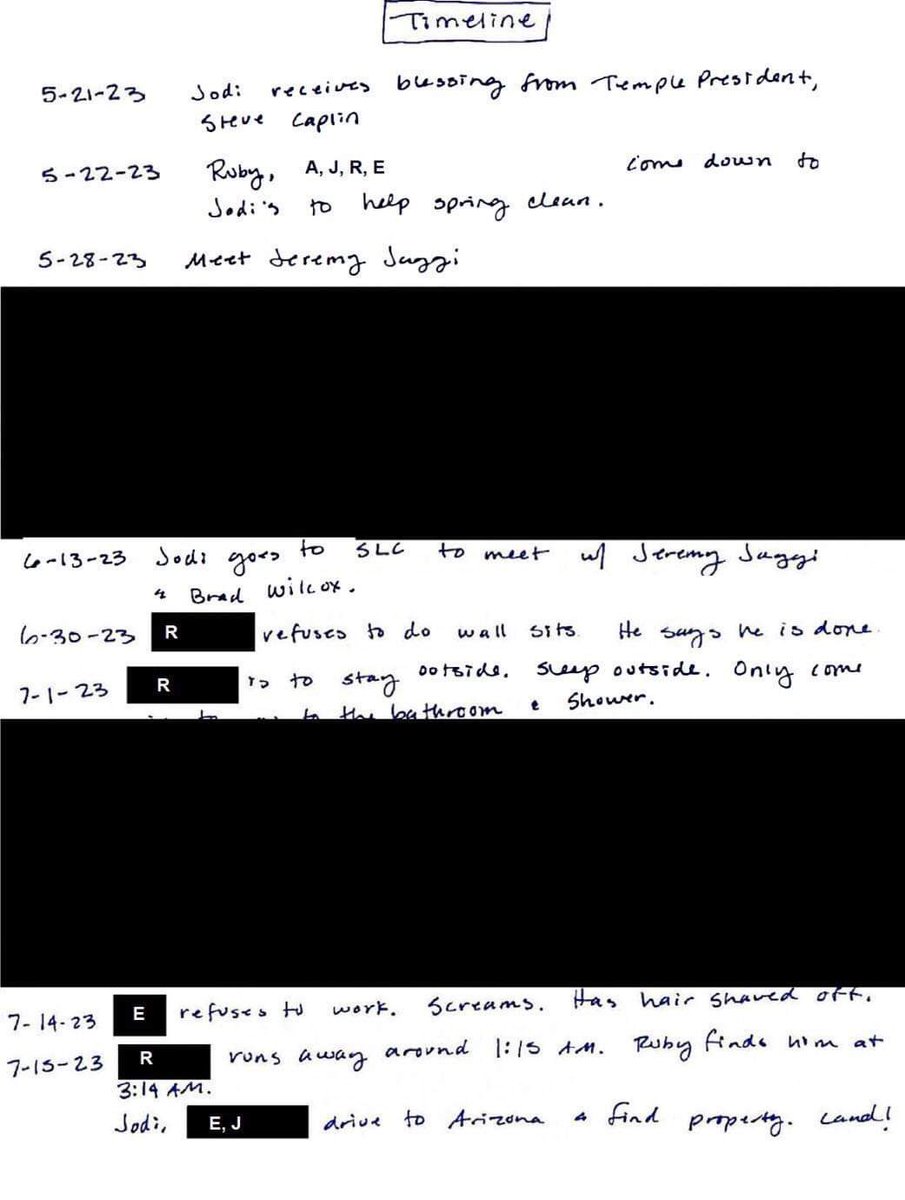 Timeline
5-21-23 Jodi receives blessing from Temple President,
Steve Caplin
5-22-23 Ruby, A, J, R, E come down to
Jodi's to help spring clean.
5-28-23 Meet Jeremy Jaggi
6-13-23 Jodi goes to SLC to meet w/ Jeremy Jaggi
& Brad Wilcox.
6-30-23 R refuses to do wall sits. He says he is done.
7-1-23 R is to stay outside. Sleep outside. Only come
to the bathroom & shower.
7-14-23 E refuses to work. Screams. Has hair shaved off.
7-15-23 R runs away around 1:15 AM. Ruby finds him at
3:14 AM.
Jodi, E, J drive to Arizona & find property. Land!